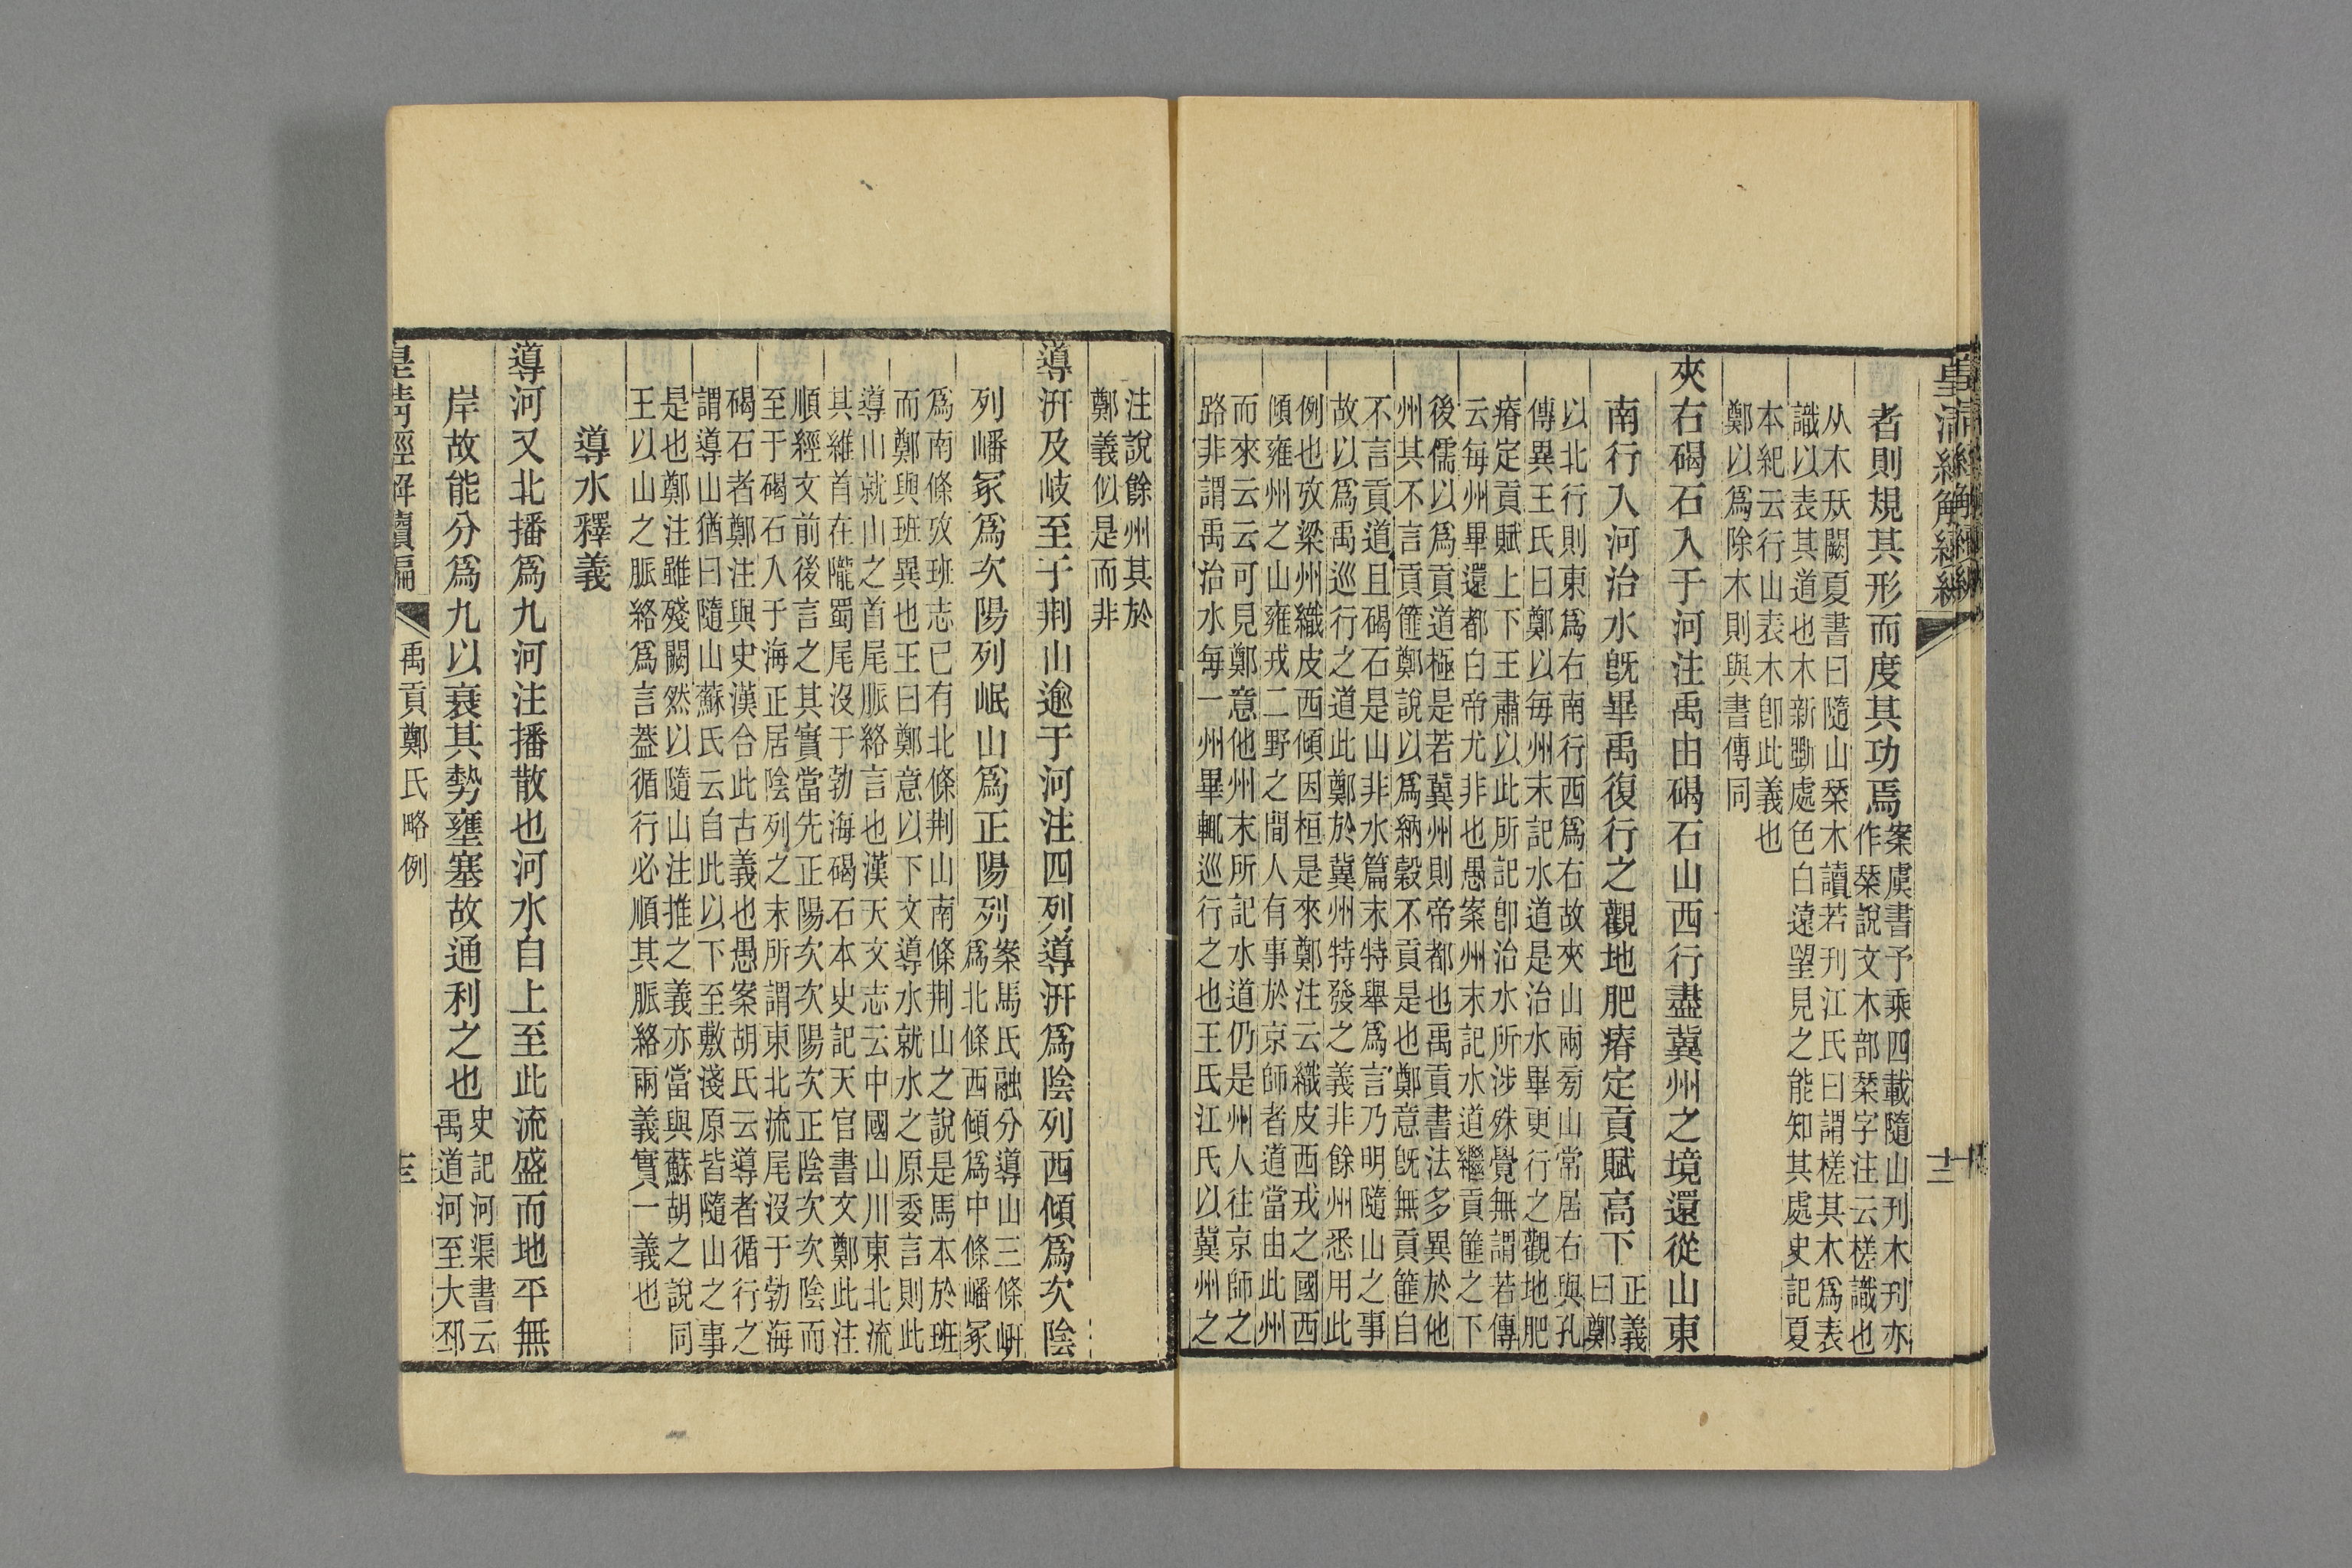 者則規其形而度其功焉
案虞書予乘四載隨山刊木刋亦
作栞說文木部栞字注云槎識也
从木㺹闕夏書曰隨山栞木讀若刊江氏曰謂槎其木爲表
識以表其道也木新斲處色白遠望見之能知其處史記夏
本紀云行山表木卽此義也
鄭以爲除木則與書傳同
夾右碣石入于河注禹由碣石山西行盡冀州之境還從山東
南行入河治水旣畢禹復行之觀地肥瘠定貢賦高下
正義
曰鄭
以北行則東爲右南行西爲右故夾山兩旁山常居右與孔
傳異王氏曰鄭以每州末記水道是治水畢更行之觀地肥
瘠定貢賦上下王肅以此所記卽治水所涉殊覺無謂若傳
云每州畢還都白帝尤非也愚案州末記水道繼貢篚之下
後儒以爲貢道極是若冀州則帝都也禹貢書法多異於他
州其不言貢篚鄭說以爲納穀不貢是也鄭意旣無貢篚自
不言貢道且碣石是山非水篇末特舉爲言乃明隨山之事
故以爲禹巡行之道此鄭於冀州特發之義非餘州悉用此
例也攷梁州織皮西傾因桓是來鄭注云織皮西戎之國西
傾雍州之山雍戎二野之間人有事於京師者道當由此州
而來云云可見鄭意他州末所記水道仍是州人往京師之
路非謂禹治水每一州畢輒巡行之也王氏江氏以冀州之
注說餘州其於
鄭義似是而非
導汧及岐至于荆山逾于河注四列導汧爲陰列西傾爲次陰
列嶓冢爲次陽列岷山爲正陽列
案馬氏融分導山三條岍
爲北條西傾爲中條嶓冢
爲南條攷班志已有北條荆山南條荆山之說是馬本於班
而鄭與班異也王曰鄭意以下文導水就水之原委言則此
導山就山之首尾脈絡言也漢天文志云中國山川東北流
其維首在隴蜀尾沒于勃海碣石本史記天官書文鄭此注
順經文前後言之其實當先正陽次次陽次正陰次次陰而
至于碣石入于海正居陰列之末所謂東北流尾沒于勃海
碣石者鄭注與史漢合此古義也愚案胡氏云導者循行之
謂導山猶曰隨山蘇氏云自此以下至敷淺原皆隨山之事
是也鄭注雖殘闕然以隨山注推之義亦當與蘇胡之說同
王以山之脈絡爲言葢循行必順其脈絡兩義實一義也
導水釋義
導河又北播爲九河注播散也河水自上至此流盛而地平無
岸故能分爲九以衰其勢壅塞故通利之也
史記河渠書云
禹道河至大邳
皇清經解續編
禹貢鄭氏略例